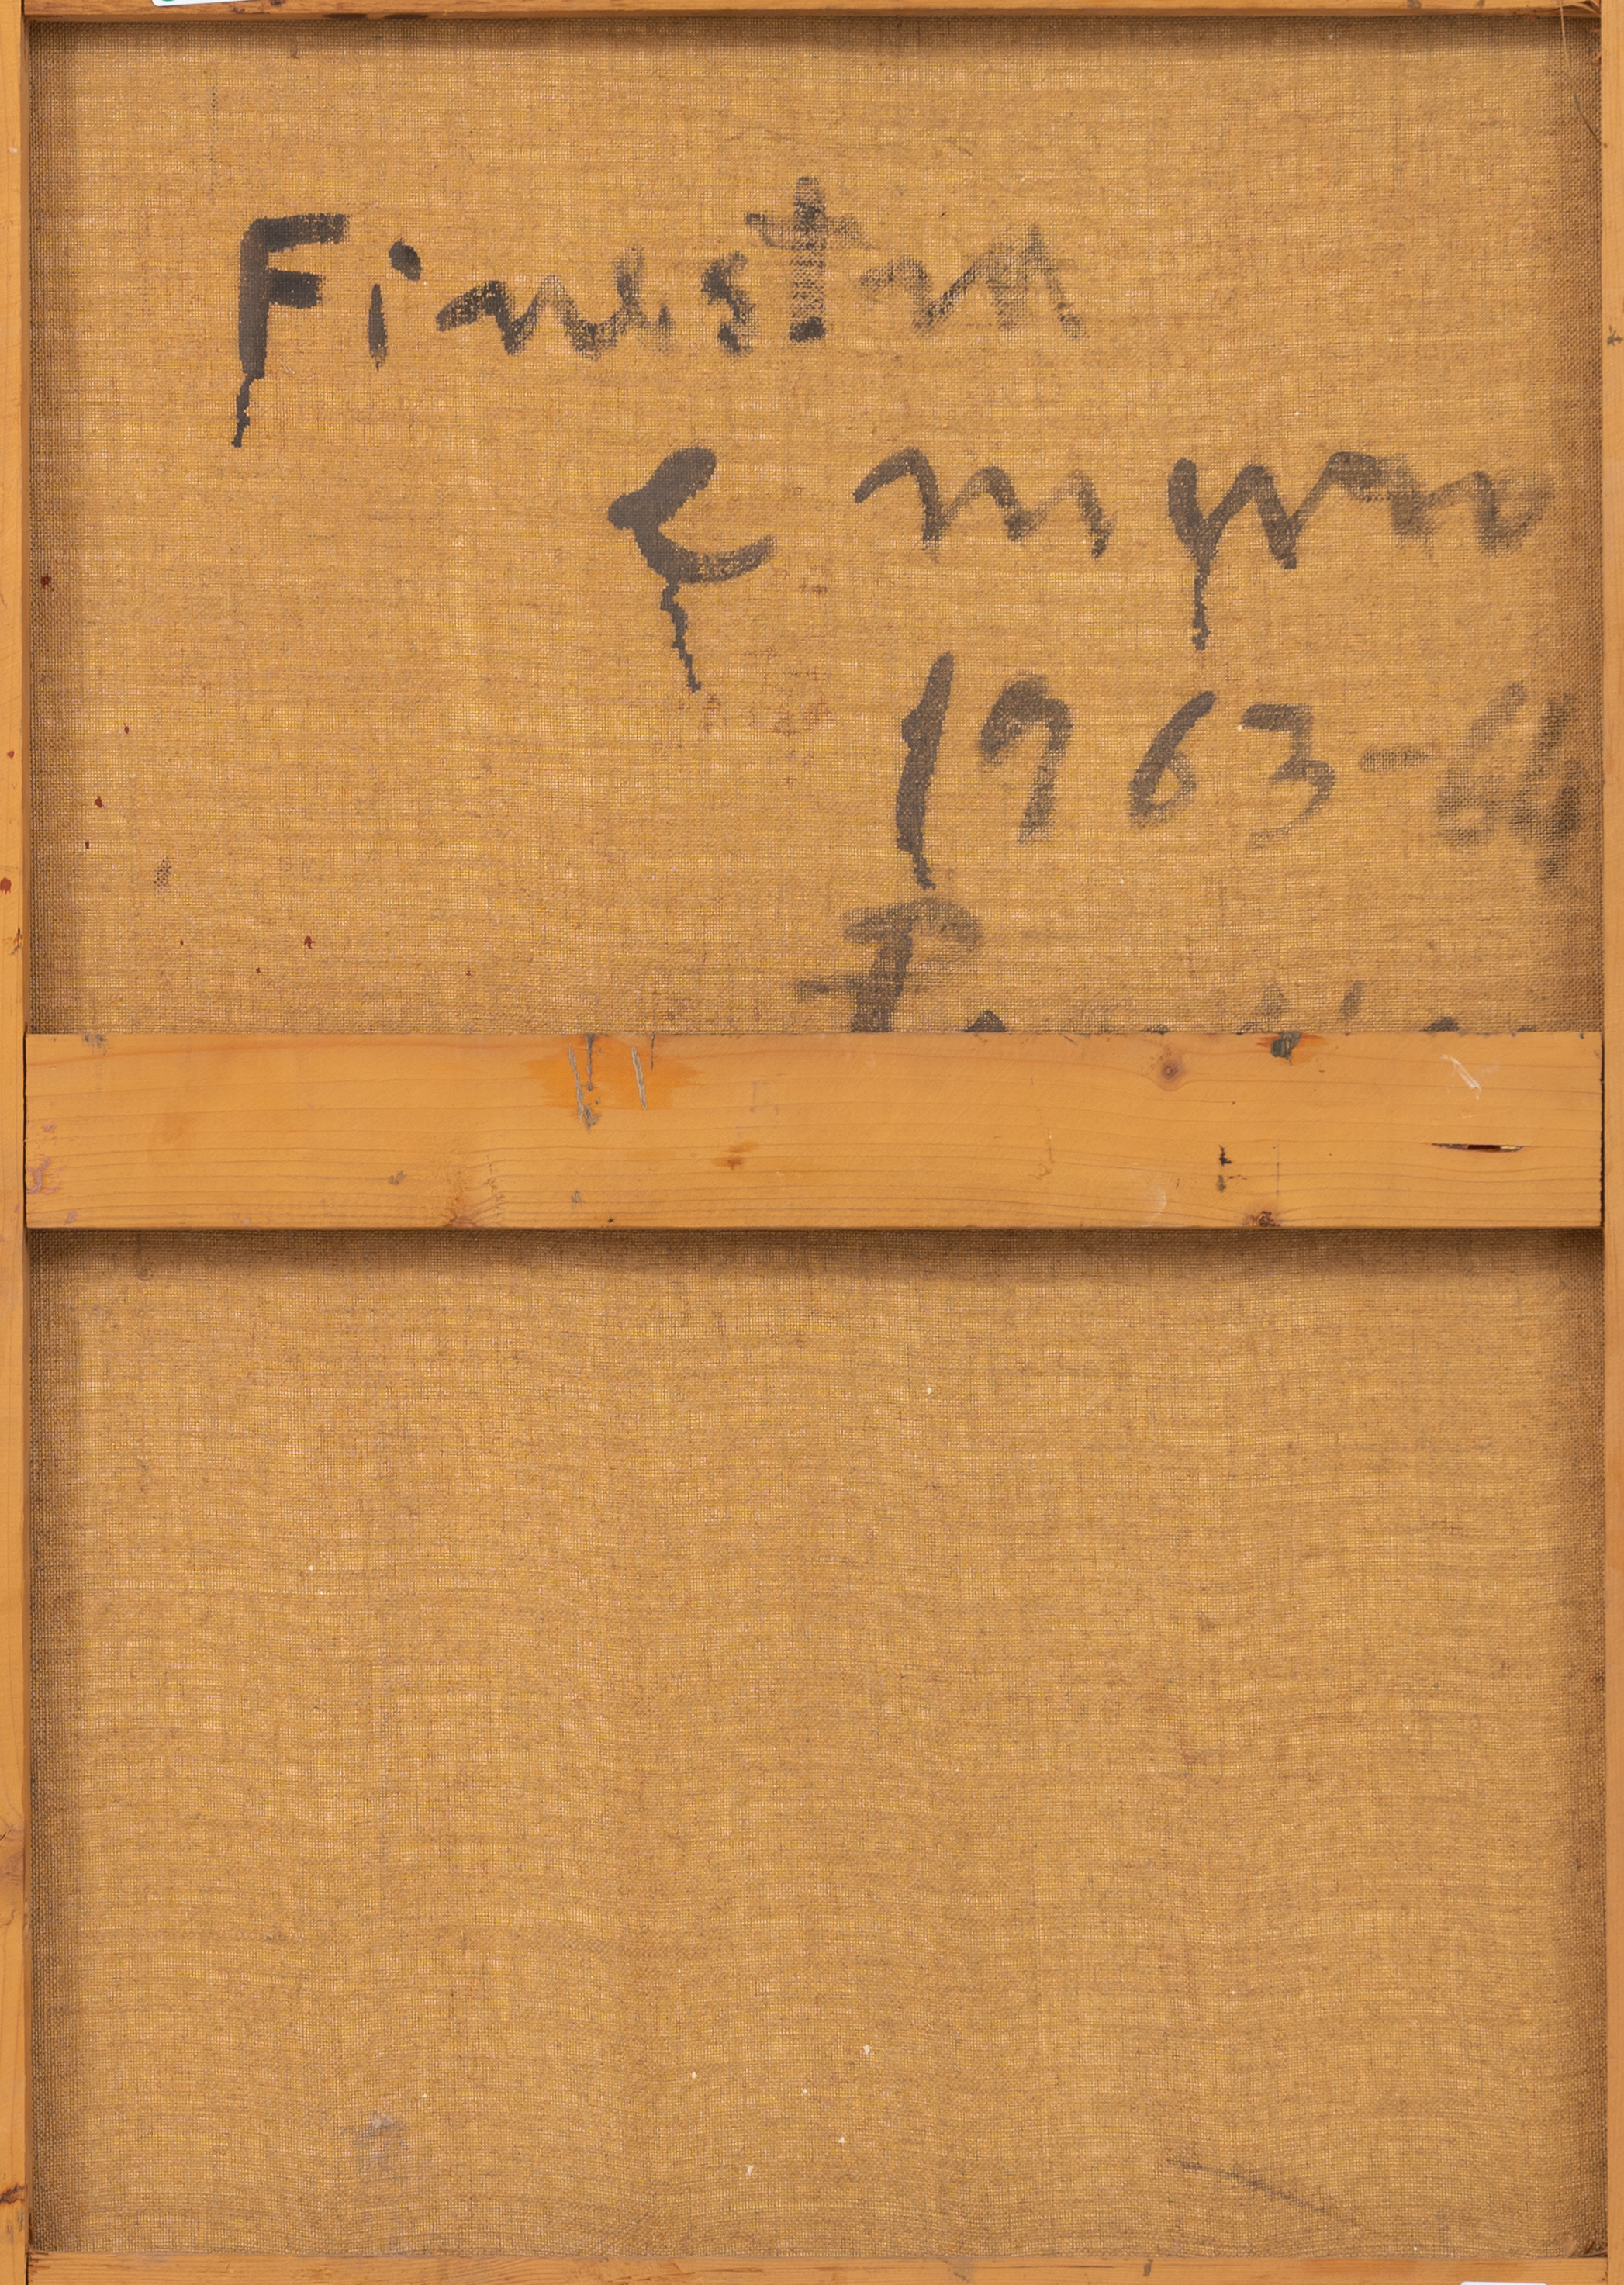 Finestra
e muro
1963-64